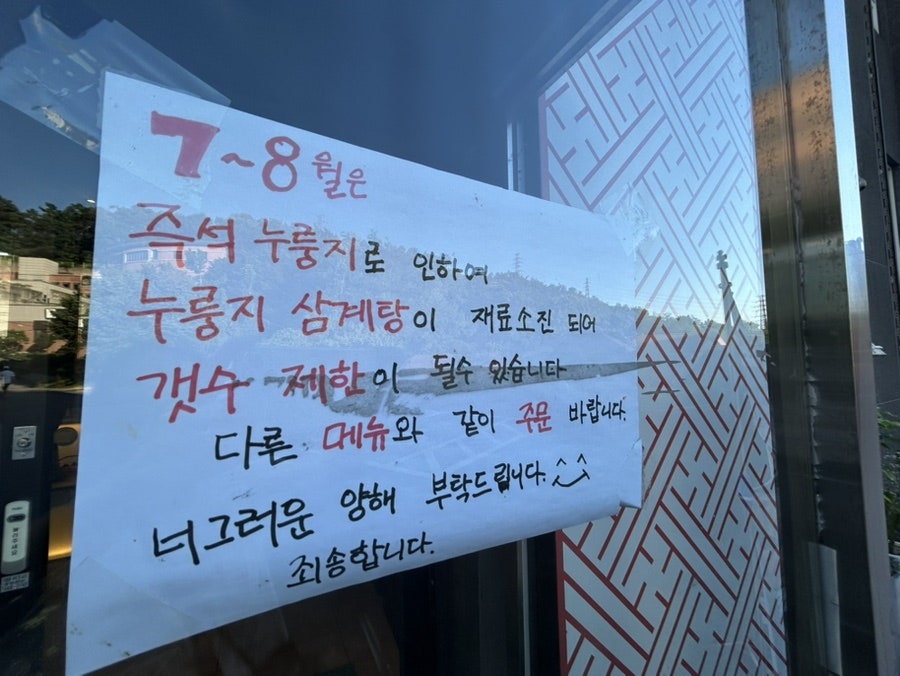 7~8월은
즉석 누룽지로 인하여
누룽지 삼계탕이 재료소진 되어
갯수 제한이 될수 있습니다
다른 메뉴와 같이 주문 바랍니다.
너그러운 양해 부탁드립니다.^^
죄송합니다.